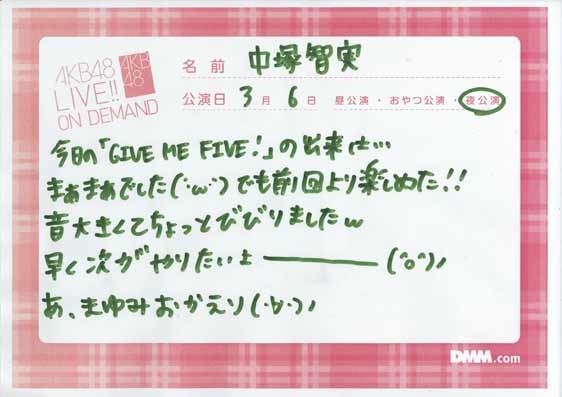 AKB48
LIVE!!
ON DEMAND
AKB
48
名前 中塚智実
公演日 3月6日 昼公演・おやつ公演・夜公演
今日の「GIVE ME FIVE!」の出来は…
まぁまぁでした(・ω・)でも前回より楽しめた!!
音大きくてちょっとびびりましたw
早く次がやりたいよ―――――(^o^)ノ
あ、まゆみおかえり(・∀・)ノ
DMM.com